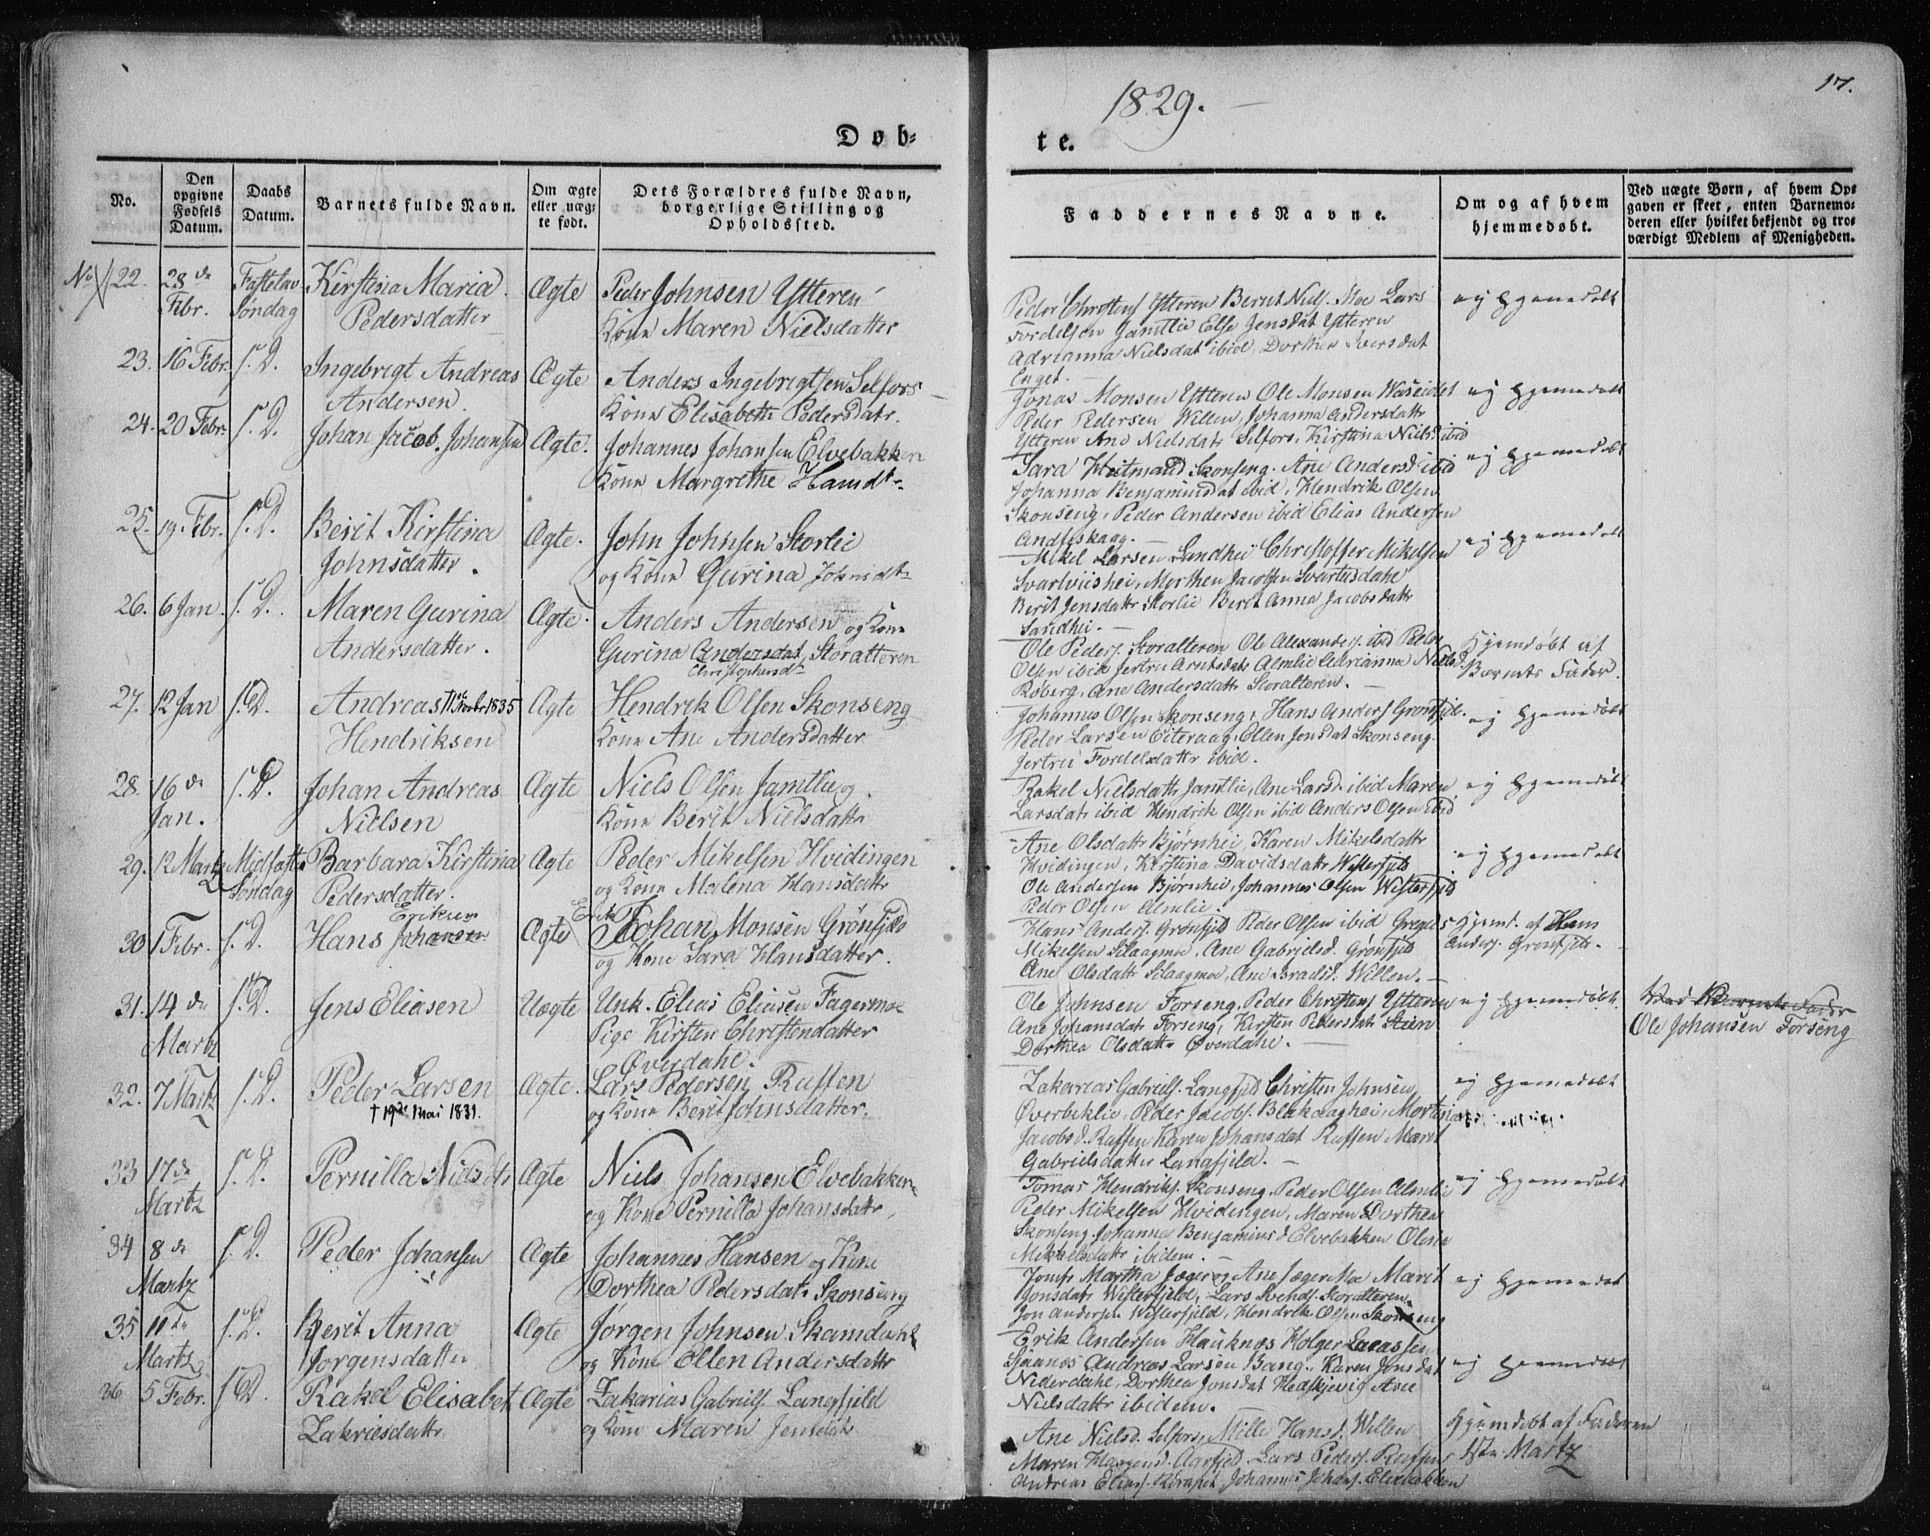 1829.
17.
Døb-
te.
No.
Den opgivne Fødsels Datum.
Daabs Datum.
Barnets fulde Navn.
Om ægte eller uægte født.
Dets Forældres fulde Navn, borgerlige Stilling og Opholdssted.
Faddernes Navne.
Om og af hvem hjemmedøbt.
Ved uægte Børn, af hvem Opgaven er skeet, enten Barnemoderen eller hvilket bekjendt og troværdigt Medlem af Menigheden.
No 22. 28de Febr. Fastelav Søndag Kirstina Maria Pedersdatter Ægte Peder Johnsen Ytteren
Kone Maren Nielsdatter
Peder Christens Ytteren Bernt Niels. Moe Lars
Fordelsen Jamtlie Else Jensdat Ytteren
Adrianna Nielsdat ibid, Dorthea Iversdat
Enget. ej hjemedøbt
23. 16 Febr. s. D. Ingebrigt Andreas Andersen Ægte Anders Ingebrigtsen Selfors
Kone Elisabeth Pedersdatr.
Jonas Monsen Ytteren Ole Monsen
Peder Pedersen Willen, Johanna Andersdattr
Ytteren Ane Nielsdatr Selfors, Kirstina Nielsd ibid
ej hjemedøbt
24. 20 Febr. s. D. Johan Jacob Johansen Ægte. Johannes Johansen Elvebakken
Kone Margrethe Hansdt.
Sara Heitmand Skonseng. Ane Andersd ibid
Johanna Benjaminsdat ibid, Hendrik Olsen
Skonseng, Peder Andersen ibid Elias Andersen
Andfiskaag. ej hjemedøbt
25. 19. Febr. s. D. Berit Kirstina Johnsdatter. Ægte. John Johnsen Storlie
og Kone Gurina Johnsdt
Mikel Larsen Sandhei Christoffer Mikelsen
Morthen Jacobsen Svartisdahl
Berit Jensdattr Storlie Berit Anna Jacobsdattr
Sandhei. ej hjemedøbt
26. 6 Jan. s. D. Maren Gurina Andersdatter. Ægte. Anders Andersen og Kone
Gurina Andersdat Storalteren
Christophersdr
Ole Peders. Storalteren Ole Alexanders. ibid Peder
Olsen ibid Jertru Arntsdatr Almlie Adrianna Nielsd
Roberg, Ane Andersdattr Storalteren.
Hjemdøbt af
Barnets Fader.
27. 12 Jan s. D. Andreas 1835
Hendriksen Ægte Hendrik Olsen Skonseng
Kone Ane Andersdatter
Johannes Olsen Skonseng, Hans Anders Grønfjeld.
Peder Larsen Eiteraag, Ellen Jonsdat Skonseng.
Jertru Fordelsdattr ibid. ej hjemedøbt
28. 16de Jan. s. D. Johan Andreas Nielsen Ægte Niels Olsen Jamtlie og
Kone Berit Nielsdattr
Rakel Nielsdattr Jamtlie, Ane Larsd. ibid Maren
Larsdatr ibid Hendrik Olsen ibid Anders Olsen ibid
ej hjemedøbt
29. 12 Martz Midfaste Søndag Barbara Kirstina Pedersdatter. Ægte Peder Mikelsen Hvidingen
og Kone Malena Hansdattr
Ane Olsdattr Bjørnhei, Karen Mikelsdattr
Hvidingen, Kirstina Davidsdattr Westerfjeld
Ole Andersen Bjørnhei, Johannes Olsen Westerfjeld
Peder Olsen Almlie. ej hjemedøbt
30 1 Febr. s. D. Hans Johansen
Eriksen Ægte Erik
Johan Monsen Grønfjeld
og Kone Sara Hansdatter.
Hans Anders. Grønfjeld Peder Olsen ibid Gregers
Mikelsen Selaagmo, Ane Gabrielsd. Grønfjeld
Ane Olsdattr Selaagmo, Willen.
Hjemd. af Hans
Anders. Grønfjeld.
31. 14de Martz s. D. Jens Eliasen Uægte Unk. Elias Eliasen Fagermo
Pige Kirsten Christensdatter
Øverdahl.
Ole Johnsen Forseng, Peder Christens Ytteren
Ane Johansdatr Forseng, Kirsten Pedersdatr Steen
Dorthea Olsdattr Øverdahl.
ej hjemedøbt
Ved Barnets Fader
Ole Johansen Forseng
32. 7 Martz s. D. Peder Larsen
† 19de Mai 1831. Ægte. Lars Pedersen Rufsen
og Kone Berit Johnsdatter.
Zakarias Gabriels. Langfjeld Christen Johnsen
Øverbeklie, Peder Jacobs. Blakaaghei, Mortina
Jacobsd. Rufsen Karen Johansdat Rufsen Marit
Gabrielsdatter Langfjeld. ej hjemedøbt
33 17de Martz s. D. Pernilla Nielsdtr Ægte Niels Johansen Elvebakken
og Kone Pernilla Johansdattr.
Tomas Hendriks. Skonseng, Peder Olsen Almlie
Peder Mikelsen Hvidingen, Maren Dorthea
Skonseng, Johanna Benjaminsd Elvebakken Olina
Mikkelsdattr ibidem. ej hjemedøbt
34 8de Martz s. D. Peder Johansen Ægte Johannes Hansen og Kone
Dorthea Pedersdatr Skonseng
Jomfr Martha Jæger og Ane Jæger Moe Marit
Jonsdatr Westerfjeld, Lars Svends. Storalteren.
Jon Andersen Westerfjeld, Hendrik Olsen Skonseng
ej hjemedøbt
35 11te Martz s. D. Berit Anna Jorgensdatter Ægte Jørgen Johnsen Skamdahl
og Kone Ellen Andersdattr
Erik Andersen Hauknæs Holger Lucassen
Sjaanes Andreas Larsen Bang, Karen Jonsdat
Nederdahl, Dorthea Jonsdat Hedskjevig Ane
Nielsdattr ibidem. ej hjemedøbt
36 5 Febr. s. D. Rakel Elisabet Zakriesdattr Ægte Zakarias Gabriels. Langfjeld
og Kone Maren Jensdatr
Ane Nielsd. Selfors, Mille Hans. Willen
Maren Lars Peders. Rufsen
Andreas Elias. Johannes Johans. Elvebakken
Hjemdøbt af Faderen
Martz